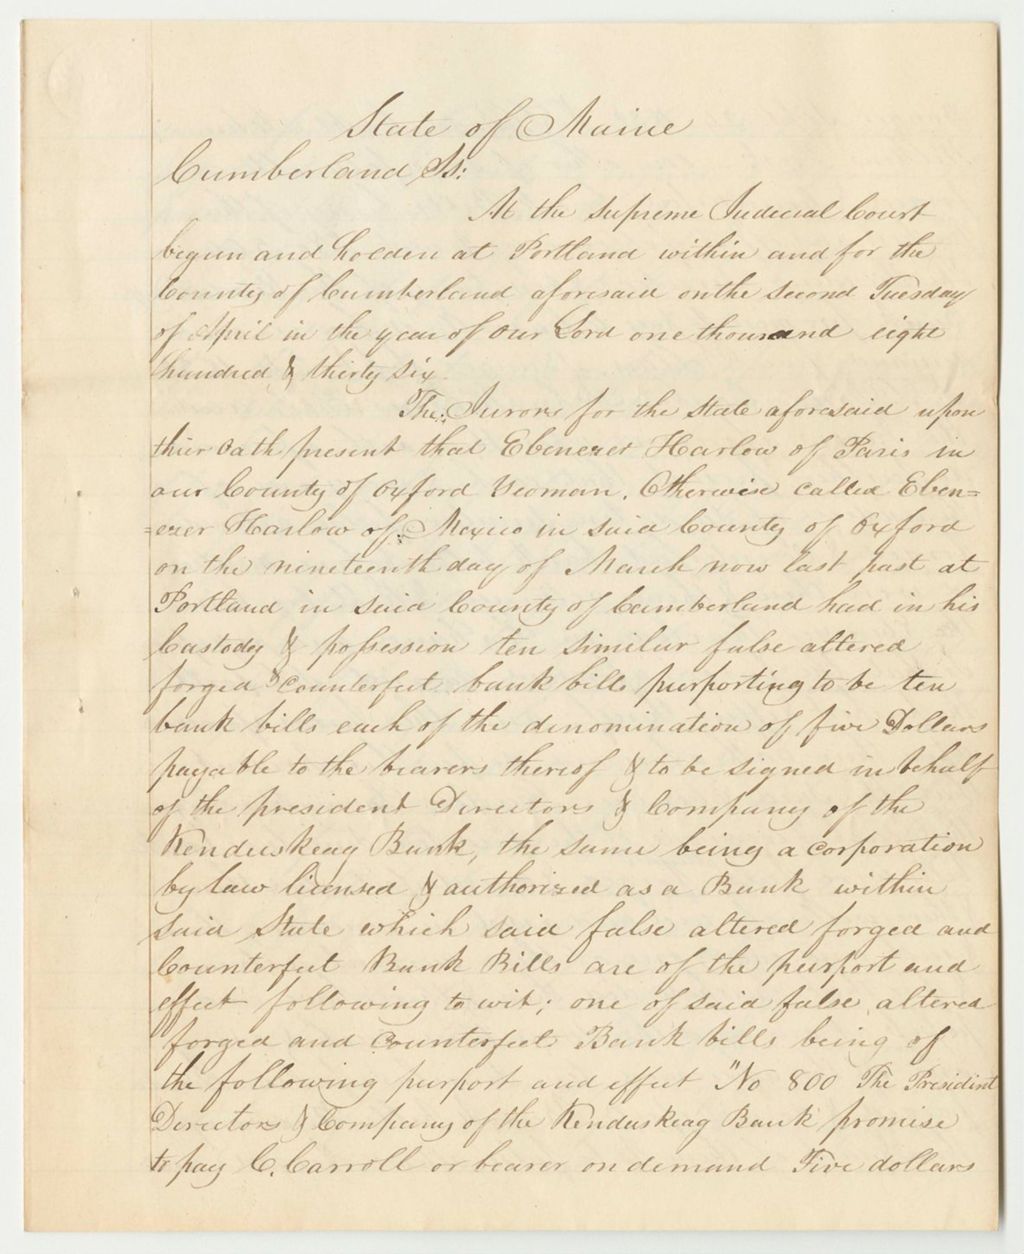 State of Maine
Cumberland Ss:
At the Supreme Judicial Court
begun and holden at Portland within and for the
County of Cumberland aforesaid on the Second Tuesday
of April in the year of our Lord one thousand eight
hundred & thirty six.
The Jurors for the State aforesaid upon
thier Oath present that Ebenezer Harlow of Paris in
our County of Oxford Yeoman. Otherwise called Eben=
=ezer Harlow of Mexico in said County of Oxford
on the nineteenth day of March now last past at
Portland in said County of Cumberland had in his
Custody & possession ten similar false altered
forged & counterfeit bank bills purporting to be ten
bank bills each of the denomination of five Dollars
payable to the bearers thereof & to be signed in behalf
of the president Directors & Company of the
Kenduskeag Bank, the same being a corporation
by law licensed & authorized as a Bank within
said State which said false altered forged and
Counterfeit Bank Bills are of the purport and
effect following to wit; one of said false altered
forged and Counterfeit Bank bills being of
the following purport and effect "No 800 The President
Directors & Company of the Kenduskeag Bank promise
to pay C. Carroll or bearer on demand Five dollars